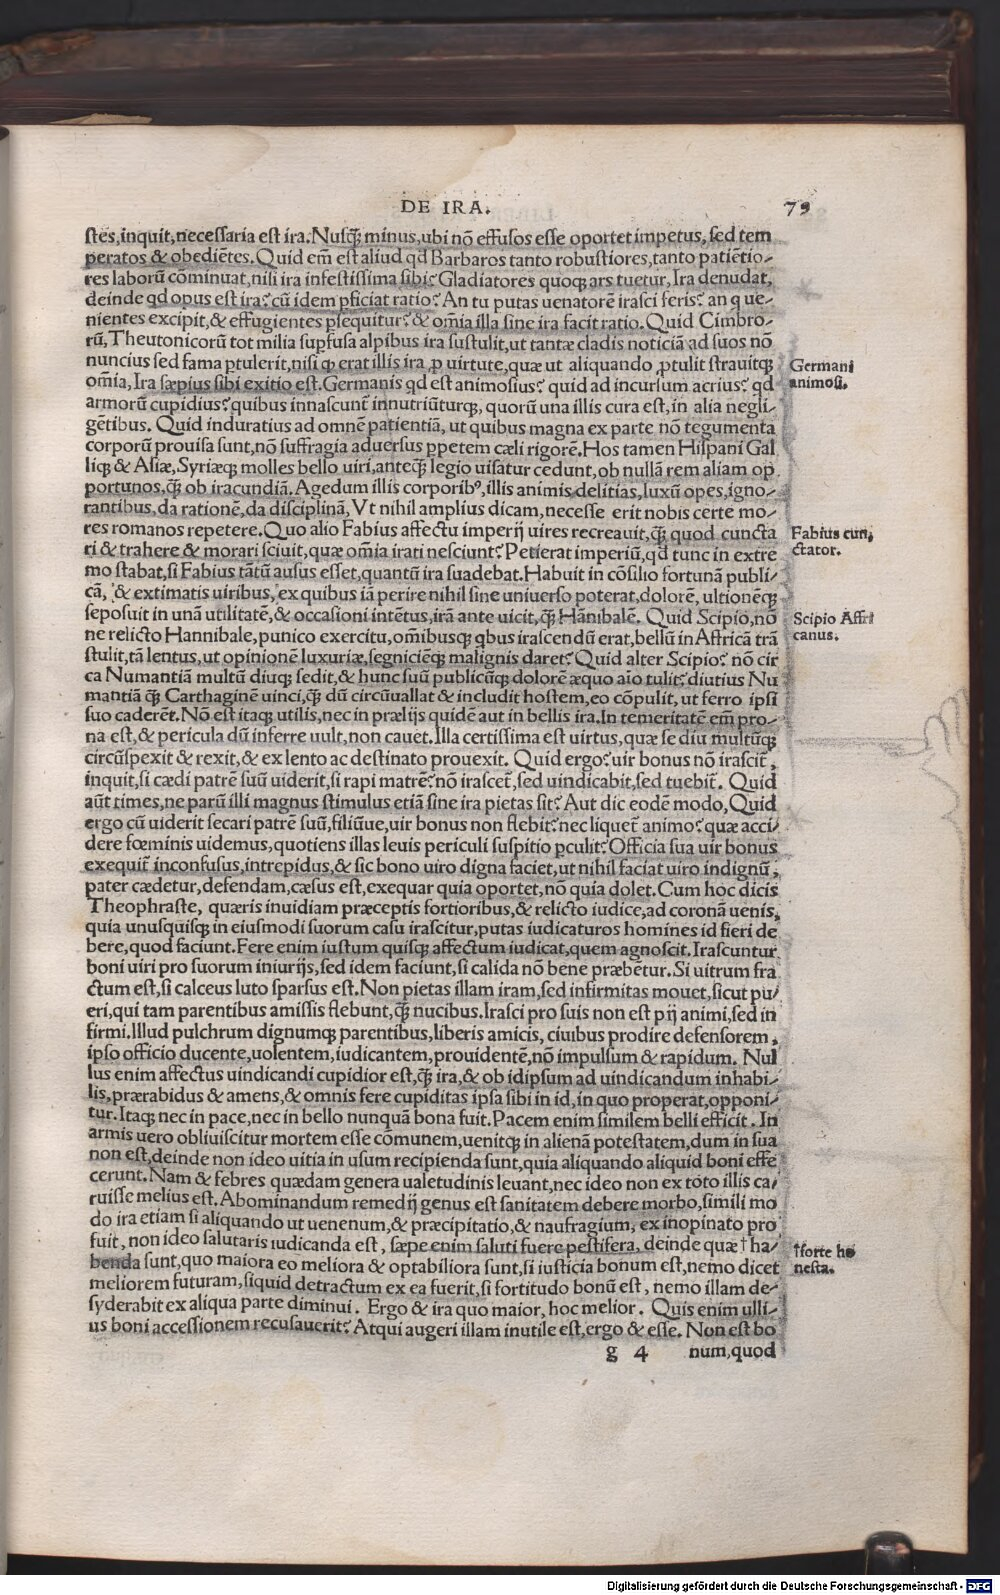 DE IRA. 79
stes,inquit,necessaria est ira.Nusq̃ minus,ubi nõ effusos esse oportet impetus,sed tem
peratos & obediẽtes.Quid em̃ est aliud qd Barbaros tanto robustiores,tanto patiẽtio⸗
res laborũ cõminuat,nisi ira infestissima sibi? Gladiatores quoqꝫ ars tuetur,Ira denudat,
deinde qd opus est ira? cũ idem pficiat ratio? An tu putas uenatorẽ irasci feris? an q ue⸗
nientes excipit,& effugientes psequitur? & om̃ia illa sine ira facit ratio.Quid Cimbro⸗
rũ,Theutonicorũ tot milia supfusa alpibus ira sustulit,ut tantæ cladis noticiã ad suos nõ
nuncius sed fama ptulerit,nisi ꝙ erat illis ira ꝓ uirtute,quæ ut aliquando ꝓtulit strauitqꝫ
om̃ia,Ira sæpius sibi exitio est.Germanis qd est animosius? quid ad incursum acrius? qd
armorũ cupidius? quibus innascunt̃ innutriũturqꝫ, quorũ una illis cura est,in alia negli⸗
gẽtibus. Quid induratius ad omnẽ patientiã, ut quibus magna ex parte nõ tegumenta
corporũ prouisa sunt,nõ suffragia aduersus ppetem cæli rigorẽ.Hos tamen Hispani Gal
liqꝫ & Asiæ,Syriæqꝫ molles bello uiri,anteq̃ legio uisatur cedunt,ob nullã rem aliam op
portunos,q̃ ob iracundiã.Agedum illis corporibꝰ,illis animis delitias,luxũ opes,igno⸗
rantibus,da rationẽ,da disciplinã,Vt nihil amplius dicam,necesse erit nobis certe mo⸗
res romanos repetere.Quo alio Fabius affectu imperij uires recreauit,q̃ quod cuncta
ri & trahere & morari sciuit,quæ om̃ia irati nesciunt? Petierat imperiũ,qd tunc in extre
mo stabat,si Fabius tãtũ ausus esset,quantũ ira suadebat.Habuit in cõsilio fortunã publi⸗
cã, & extimatis uiribus,ex quibus iã perire nihil sine uniuerso poterat,dolorẽ, ultionẽqꝫ
seposuit in unã utilitatẽ,& occasioni intẽtus,irã ante uicit,q̃ Hãnibalẽ. Quid Scipio,nõ
ne relicto Hannibale,punico exercitu,om̃ibusqꝫ qbus irascendũ erat,bellũ in Affricã trã
stulit,tã lentus,ut opinionẽ luxuriæ,segniciẽqꝫ malignis daret? Quid alter Scipio? nõ cir
ca Numantiã multũ diuqꝫ sedit,& hunc suũ publicũqꝫ dolorẽ æquo aĩo tulit? diutius Nu
mantiã q̃ Carthaginẽ uinci,q̃ dũ circũuallat & includit hostem,eo cõpulit,ut ferro ipsi
suo caderẽt.Nõ est itaqꝫ utilis,nec in prælijs quidẽ aut in bellis ira.In temeritatẽ em̃ pro⸗
na est,& pericula dũ inferre uult,non cauet.Illa certissima est uirtus,quæ se diu multũqꝫ
circũspexit & rexit,& ex lento ac destinato prouexit. Quid ergo? uir bonus nõ irascit̃,
inquit,si cædi patrẽ suũ uiderit,si rapi matrẽ? nõ irascet̃,sed uindicabit,sed tuebit̃. Quid
aũt times,ne parũ illi magnus stimulus etiã sine ira pietas sit? Aut dic eodẽ modo,Quid
ergo cũ uiderit secari patrẽ suũ,filiũue,uir bonus non flebit? nec liquet̃ animo? quæ acci⸗
dere fœminis uidemus,quotiens illas leuis periculi suspitio pculit? Officia sua uir bonus
exequit̃ inconfusus,intrepidus,& sic bono uiro digna faciet,ut nihil faciat uiro indignũ,
pater cædetur,defendam,cæsus est,exequar quia oportet,nõ quia dolet.Cum hoc dicis
Theophraste, quæris inuidiam præceptis fortioribus,& relicto iudice,ad coronã uenis,
quia unusquisqꝫ in eiusmodi suorum casu irascitur,putas iudicaturos homines id fieri de
bere,quod faciunt.Fere enim iustum quisqꝫ affectum iudicat,quem agnoscit.Irascuntur
boni uiri pro suorum iniurijs,sed idem faciunt,si calida nõ bene præbẽtur.Si uitrum fra
ctum est,si calceus luto sparsus est.Non pietas illam iram,sed infirmitas mouet,sicut pu⸗
eri,qui tam parentibus amissis flebunt,q̃ nucibus.Irasci pro suis non est pij animi,sed in
firmi.Illud pulchrum dignumqꝫ parentibus,liberis amicis, ciuibus prodire defensorem,
ipso officio ducente,uolentem,iudicantem,prouidentẽ,nõ impulsum & rapidum. Nul
lus enim affectus uindicandi cupidior est,q̃ ira,& ob idipsum ad uindicandum inhabi⸗
lis,prærabidus & amens,& omnis fere cupiditas ipsa sibi in id,in quo properat,opponi⸗
tur.Itaqꝫ nec in pace,nec in bello nunquã bona fuit.Pacem enim similem belli efficit. In
armis uero obliuiscitur mortem esse cõmunem,uenitqꝫ in alienã potestatem,dum in sua
non est,deinde non ideo uitia in usum recipienda sunt,quia aliquando aliquid boni effe
cerunt.Nam & febres quædam genera ualetudinis leuant,nec ideo non ex toto illis ca⸗
ruisse melius est.Abominandum remedij genus est sanitatem debere morbo,simili mo
do ira etiam si aliquando ut uenenum,& præcipitatio,& naufragium, ex inopinato pro
fuit, non ideo salutaris iudicanda est, sæpe enim saluti fuere pestifera, deinde quæ † ha⸗
benda sunt,quo maiora eo meliora & optabiliora sunt,si iusticia bonum est,nemo dicet
meliorem futuram,siquid detractum ex ea fuerit,si fortitudo bonũ est, nemo illam de⸗
syderabit ex aliqua parte diminui. Ergo & ira quo maior, hoc melior. Quis enim ulli⸗
us boni accessionem recusauerit? Atqui augeri illam inutile est,ergo & esse. Non est bo
g 4 num,quod
Germani
animosi.
Fabius cun,
ctator.
Scipio Affri
canus.
†forte ho
nesta.
Digitalisierung gefördert durch die Deutsche Forschungsgemeinschaft - DFG